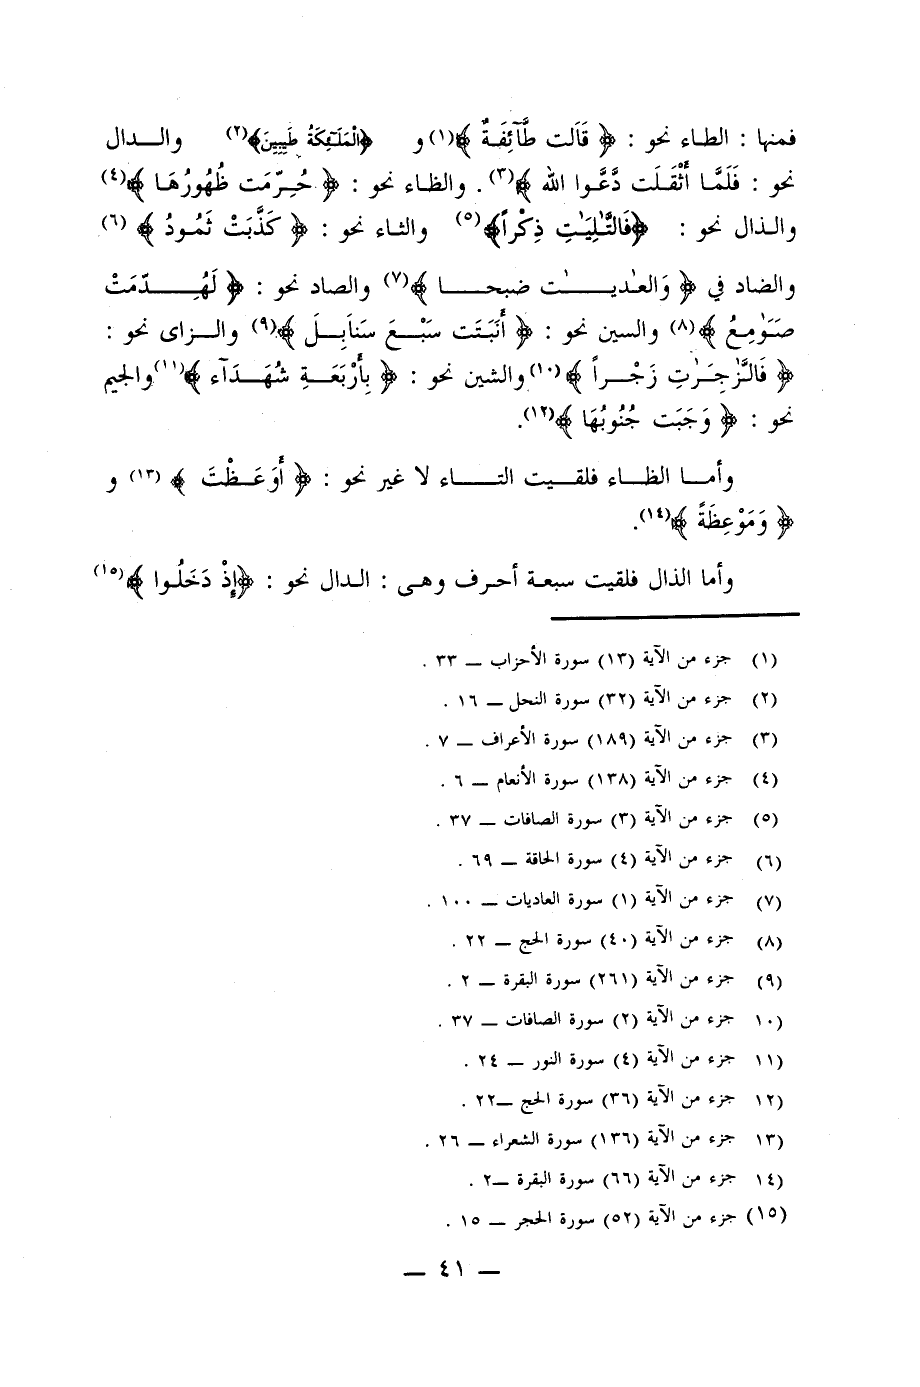 فمنها : الطاء نحو : ﴿ قَالَت طَّآئِفَةٌ ﴾(١) و ﴿الْمَلَٰٓئِكَةُ طَيِّبِينَ﴾(٢) والــدال
نحو : فَلَمَّا أَثْقَلَت دَّعَوا الله ﴾(٣). والظاء نحو : ﴿ حُرِّمَت ظُهُورُهَا ﴾(٤)
والذال نحو : ﴿فَالتَّٰلِيَٰتِ ذِكْراً﴾(٥) والثاء نحو : ﴿ كَذَّبَتْ ثَمُودُ ﴾ (٦)
والضاد في ﴿ وَالعٰديـٰت ضبحـا ﴾(٧) والصاد نحو : ﴿ لَهُـدّمَتْ
صَوَٰمِعُ ﴾(٨) والسين نحو : ﴿ أَنۢبَتَت سَبْـعَ سَنَابِلَ ﴾(٩) والـزاى نحو :
﴿ فَالزَّٰجِرَٰتِ زَجْـراً ﴾(١٠) والشين نحو : ﴿ بِأَرْبَعَـةِ شُهَـدَآء ﴾(١١) والجيم
نحو : ﴿ وَجَبَت جُنُوبُهَا ﴾(١٢).
وأمـا الظـاء فلقـيت التـاء لا غير نحو : ﴿ أَوَعَـظْتَ ﴾ (١٣) و
﴿ وَمَوْعِظَةً ﴾(١٤).
وأما الذال فلقيت سبعة أحرف وهى : الدال نحو : ﴿إِذْ دَخَلُوا ﴾(١٥)
(١) جزء من الآية (١٣) سورة الأحزاب ــ ٣٣ .
(٢) جزء من الآية (٣٢) سورة النحل ــ ١٦ .
(٣) جزء من الآية (١٨٩) سورة الأعراف ــ ٧ .
(٤) جزء من الآية (١٣٨) سورة الأنعام ــ ٦ .
(٥) جزء من الآية (٣) سورة الصافات ــ ٣٧ .
(٦) جزء من الآية (٤) سورة الحاقة ــ ٦٩ .
(٧) جزء من الآية (١) سورة العاديات ــ ١٠٠ .
(٨) جزء من الآية (٤٠) سورة الحج ــ ٢٢ .
(٩) جزء من الآية (٢٦١) سورة البقرة ــ ٢ .
(١٠ جزء من الآية (٢) سورة الصافات ــ ٣٧ .
(١١ جزء من الآية (٤) سورة النور ــ ٢٤ .
(١٢ جزء من الآية (٣٦) سورة الحج ــ٢٢ .
(١٣ جزء من الآية (١٣٦) سورة الشعراء ــ ٢٦ .
(١٤ جزء من الآية (٦٦) سورة البقرة ــ٢ .
(١٥) جزء من الآية (٥٢) سورة الحجر ــ ١٥ .
ــ ٤١ ــ